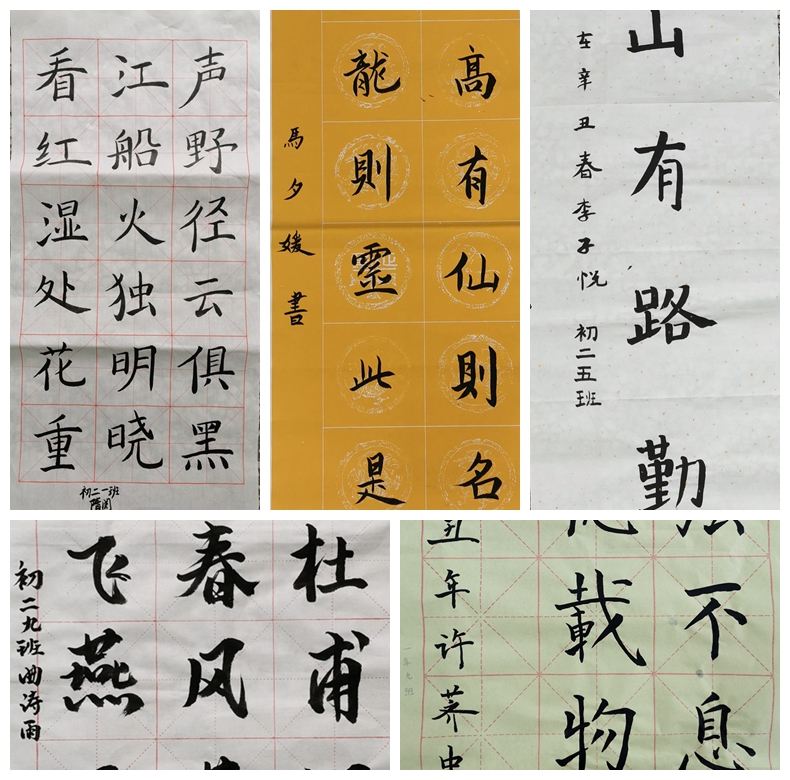 声野径云俱黑
江船火独明晓
看红湿处花重
初二一班
高有仙则名
龍則靈此是
馬夕媛書
山有路勤
在辛丑春李子悦 初二五班
杜甫
春风
飞燕
初二九班曲涛雨
不息
載物
丑年许荞中
一年九班